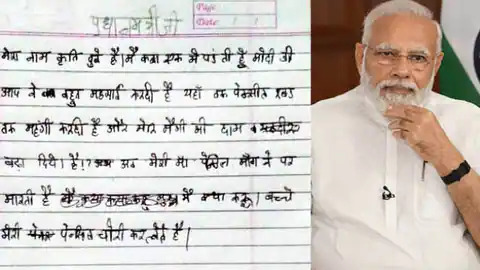 Page
Date
प्रधानमंत्री जी
मेरा नाम कृति दुबे है। मै कक्षा एक मे पढ़ती हूँ मोदी जी
आप ने बहुत महगाई करदी है यहाँ तक पेन्सील रबड
तक महंगी करदी है और मेरी मैगी की दाम भी
बढ़ा दिये। है।? अब मेरी मा पेन्सिल माँगने पर
मारती है मैं क्या करू। बच्चे
मेरी पेन्सिल चोरी कर लेते है।